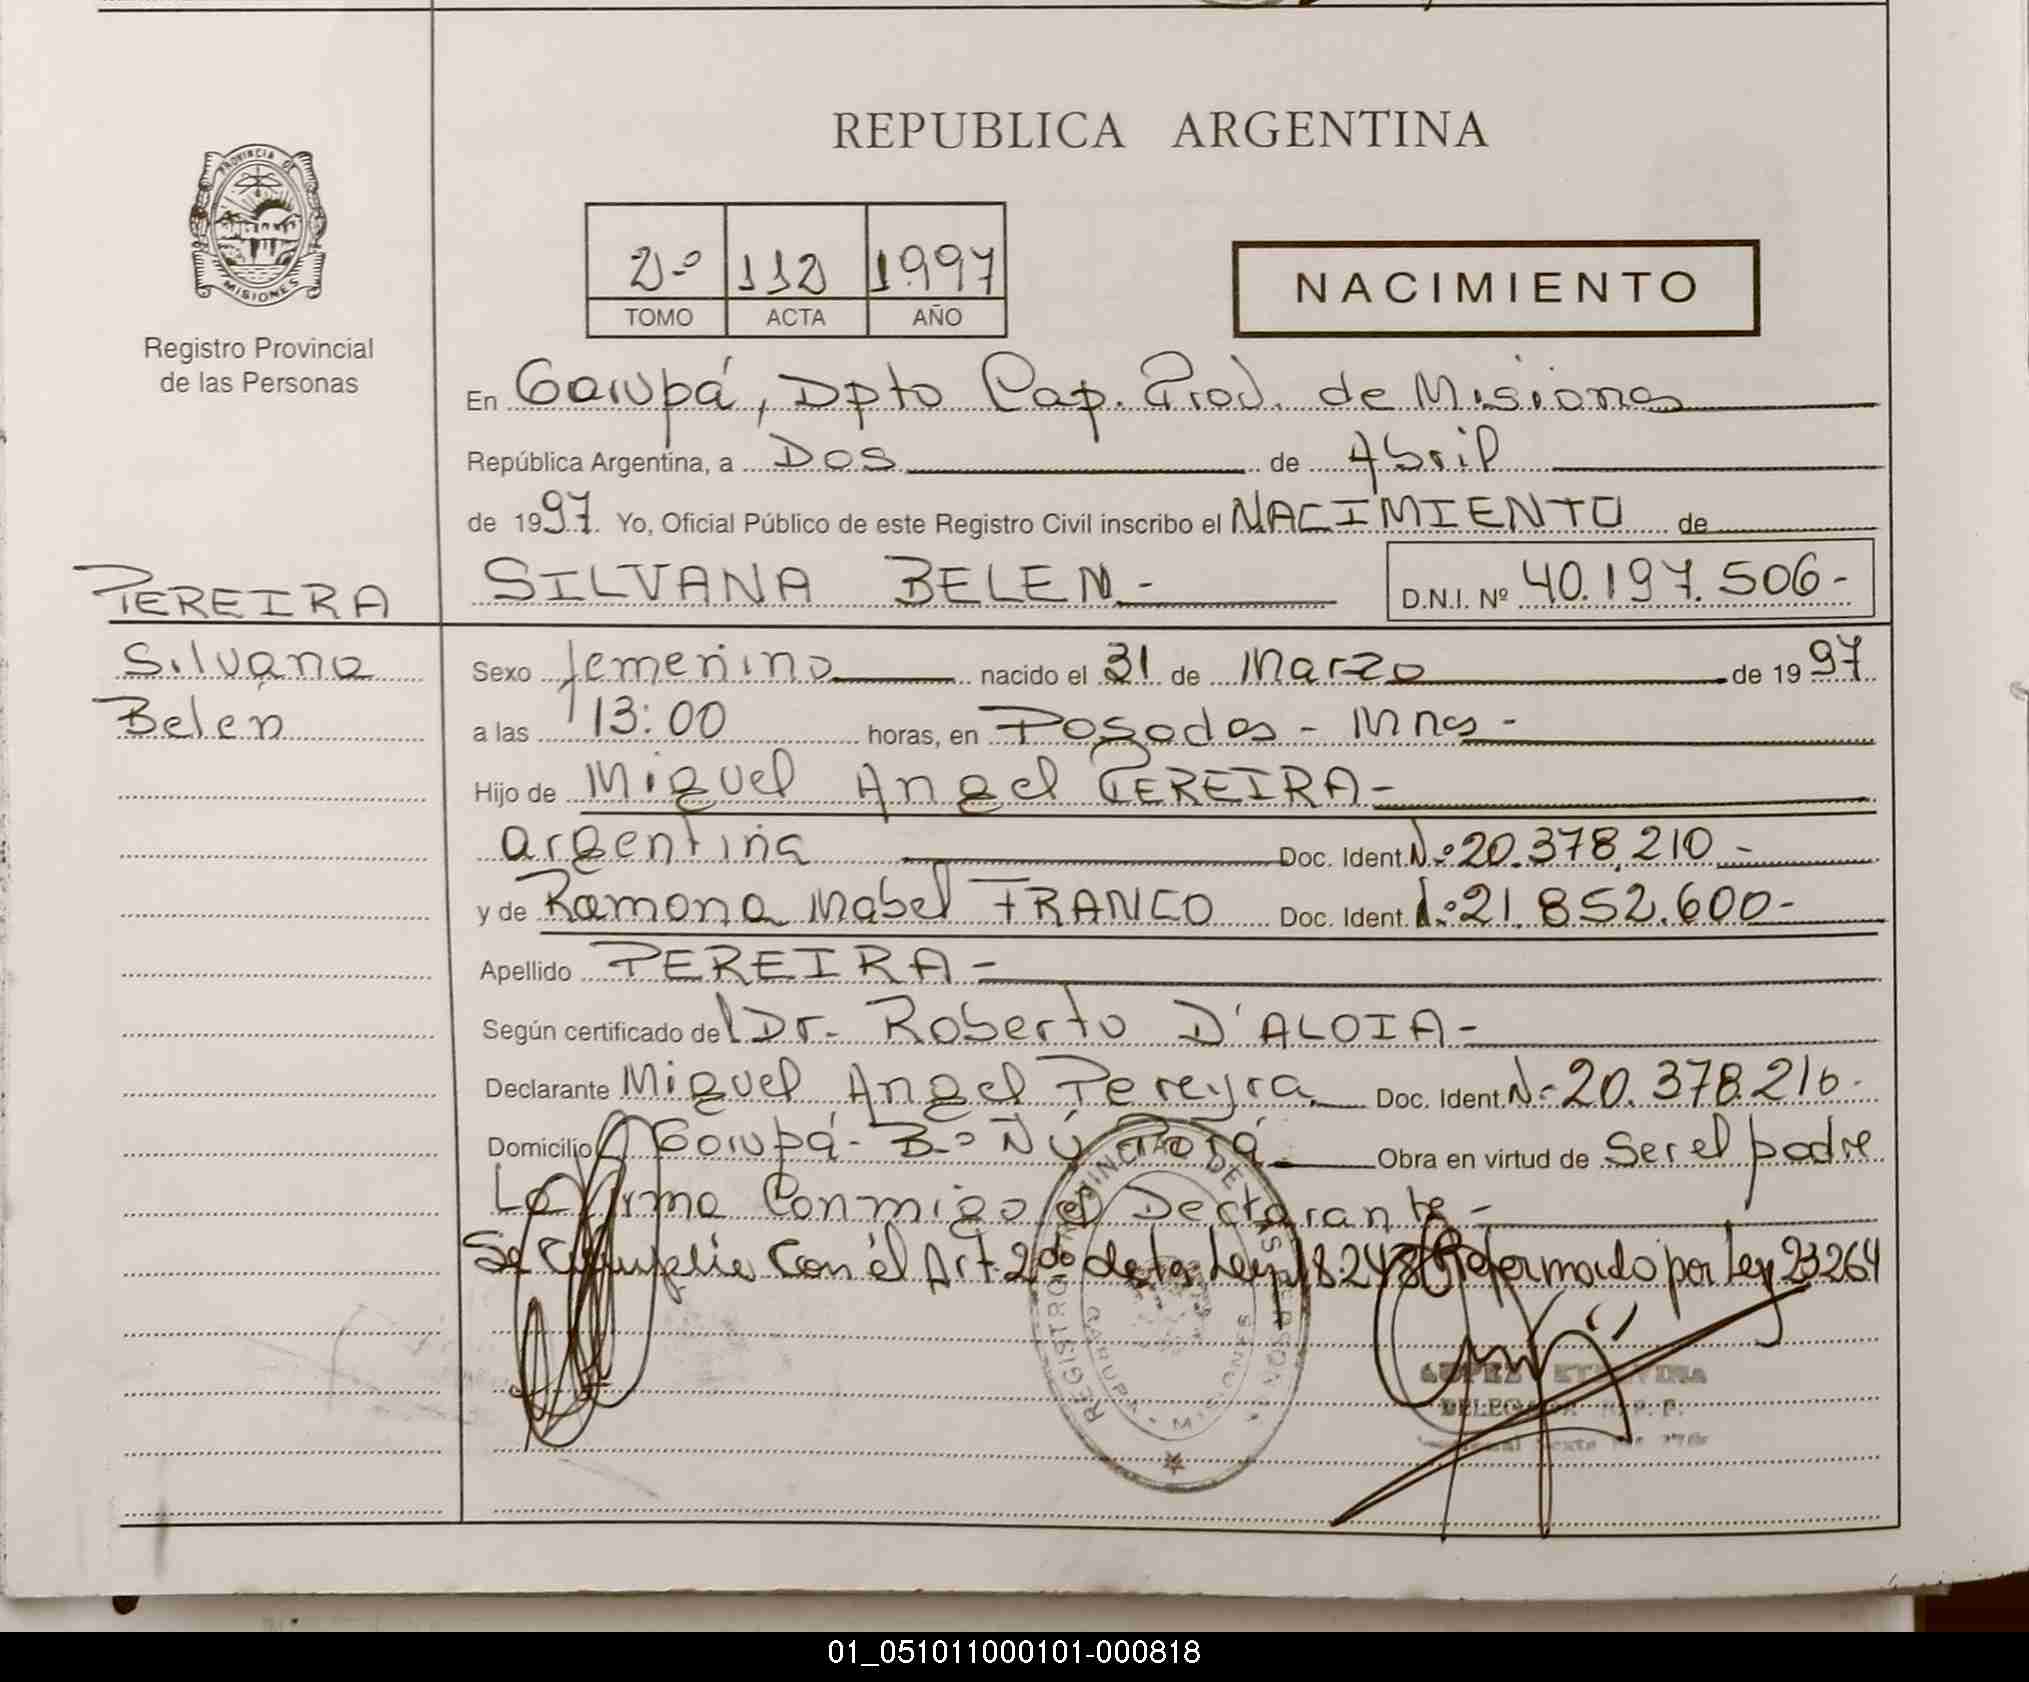 REPUBLICA ARGENTINA
PROVINCIA DE
MISIONES
Registro Provincial
de las Personas
2º 112 1997
TOMO ACTA AÑO
NACIMIENTO
En Garupá, Dpto Cap. Prov. de Misiones
República Argentina, a Dos de Abril
de 1997. Yo, Oficial Público de este Registro Civil inscribo el NACIMIENTO de
PEREIRA
SILVANA BELEN - D.N.I. Nº 40.197.506-
Silvana
Belen
Sexo femenino nacido el 31 de Marzo de 1997
a las 13:00 horas, en Posadas - Mnes -
Hijo de Miguel Angel PEREIRA-
argentina Doc. Ident. Nº 20.378.210 -
y de Ramona Mabel FRANCO Doc. Ident. Nº 21.852.600-
Apellido PEREIRA -
Según certificado del Dr. Roberto D'ALOIA -
Declarante Miguel Angel Pereyra Doc. Ident. Nº 20.378.210.
Domicilio Garupá - Bº Ñú Porá Obra en virtud de Ser el padre
La firma Conmigo el Declarante -
Se Cumplio Con el Art 2do de la Ley 18.248 Reformado por Ley 23264
REGISTRO PROVINCIAL DE LAS PERSONAS
GARUPA - MISIONES
LOPEZ
DELEGADA R. P. P.
01_051011000101-000818